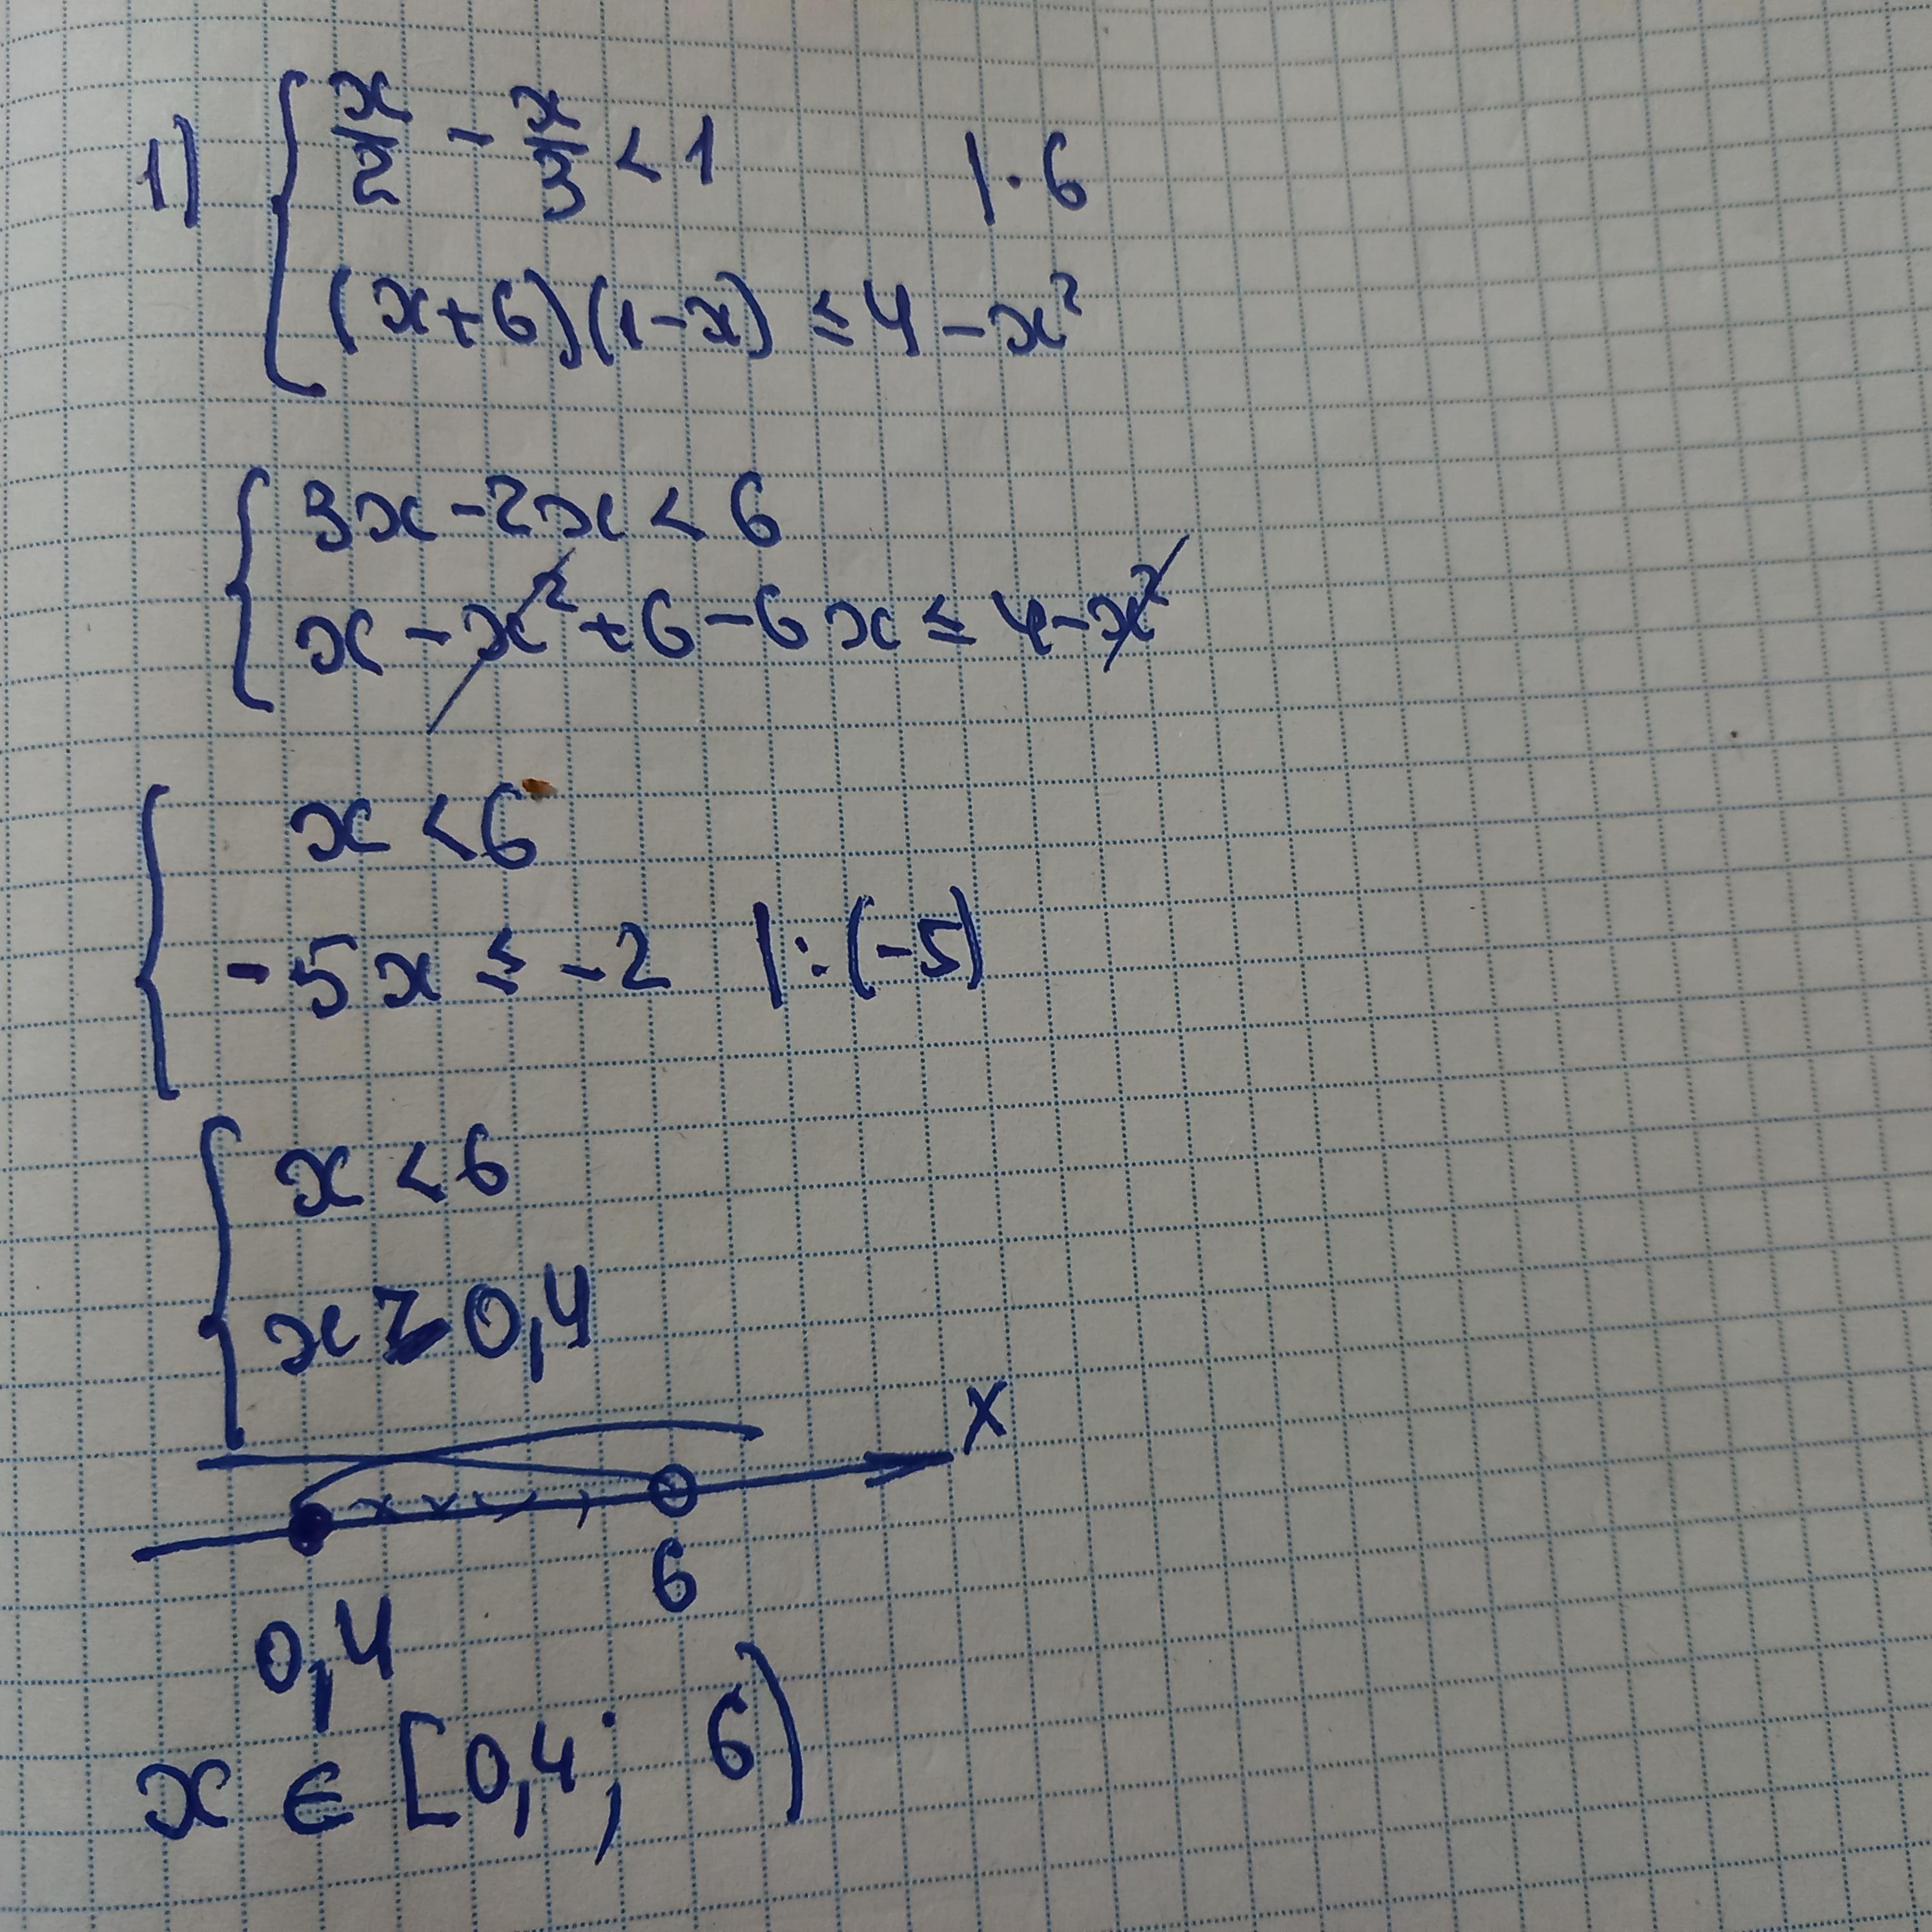 1) { x/2 - x/3 < 1 | · 6
(x+6)(1-x) ≤ 4 - x²
{ 3x - 2x < 6
x - x² + 6 - 6x ≤ 4 - x²
{ x < 6
-5x ≤ -2 | : (-5)
{ x < 6
x ≥ 0,4
x
6
0,4
x ∈ [0,4; 6)